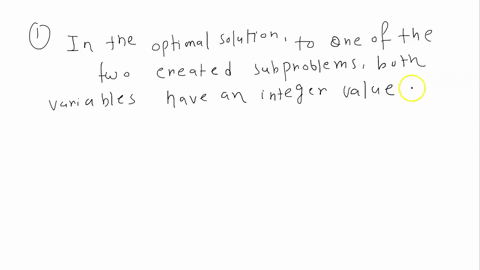 ① In the optimal solution, to one of the
two created subproblems, both
variables have an integer value.